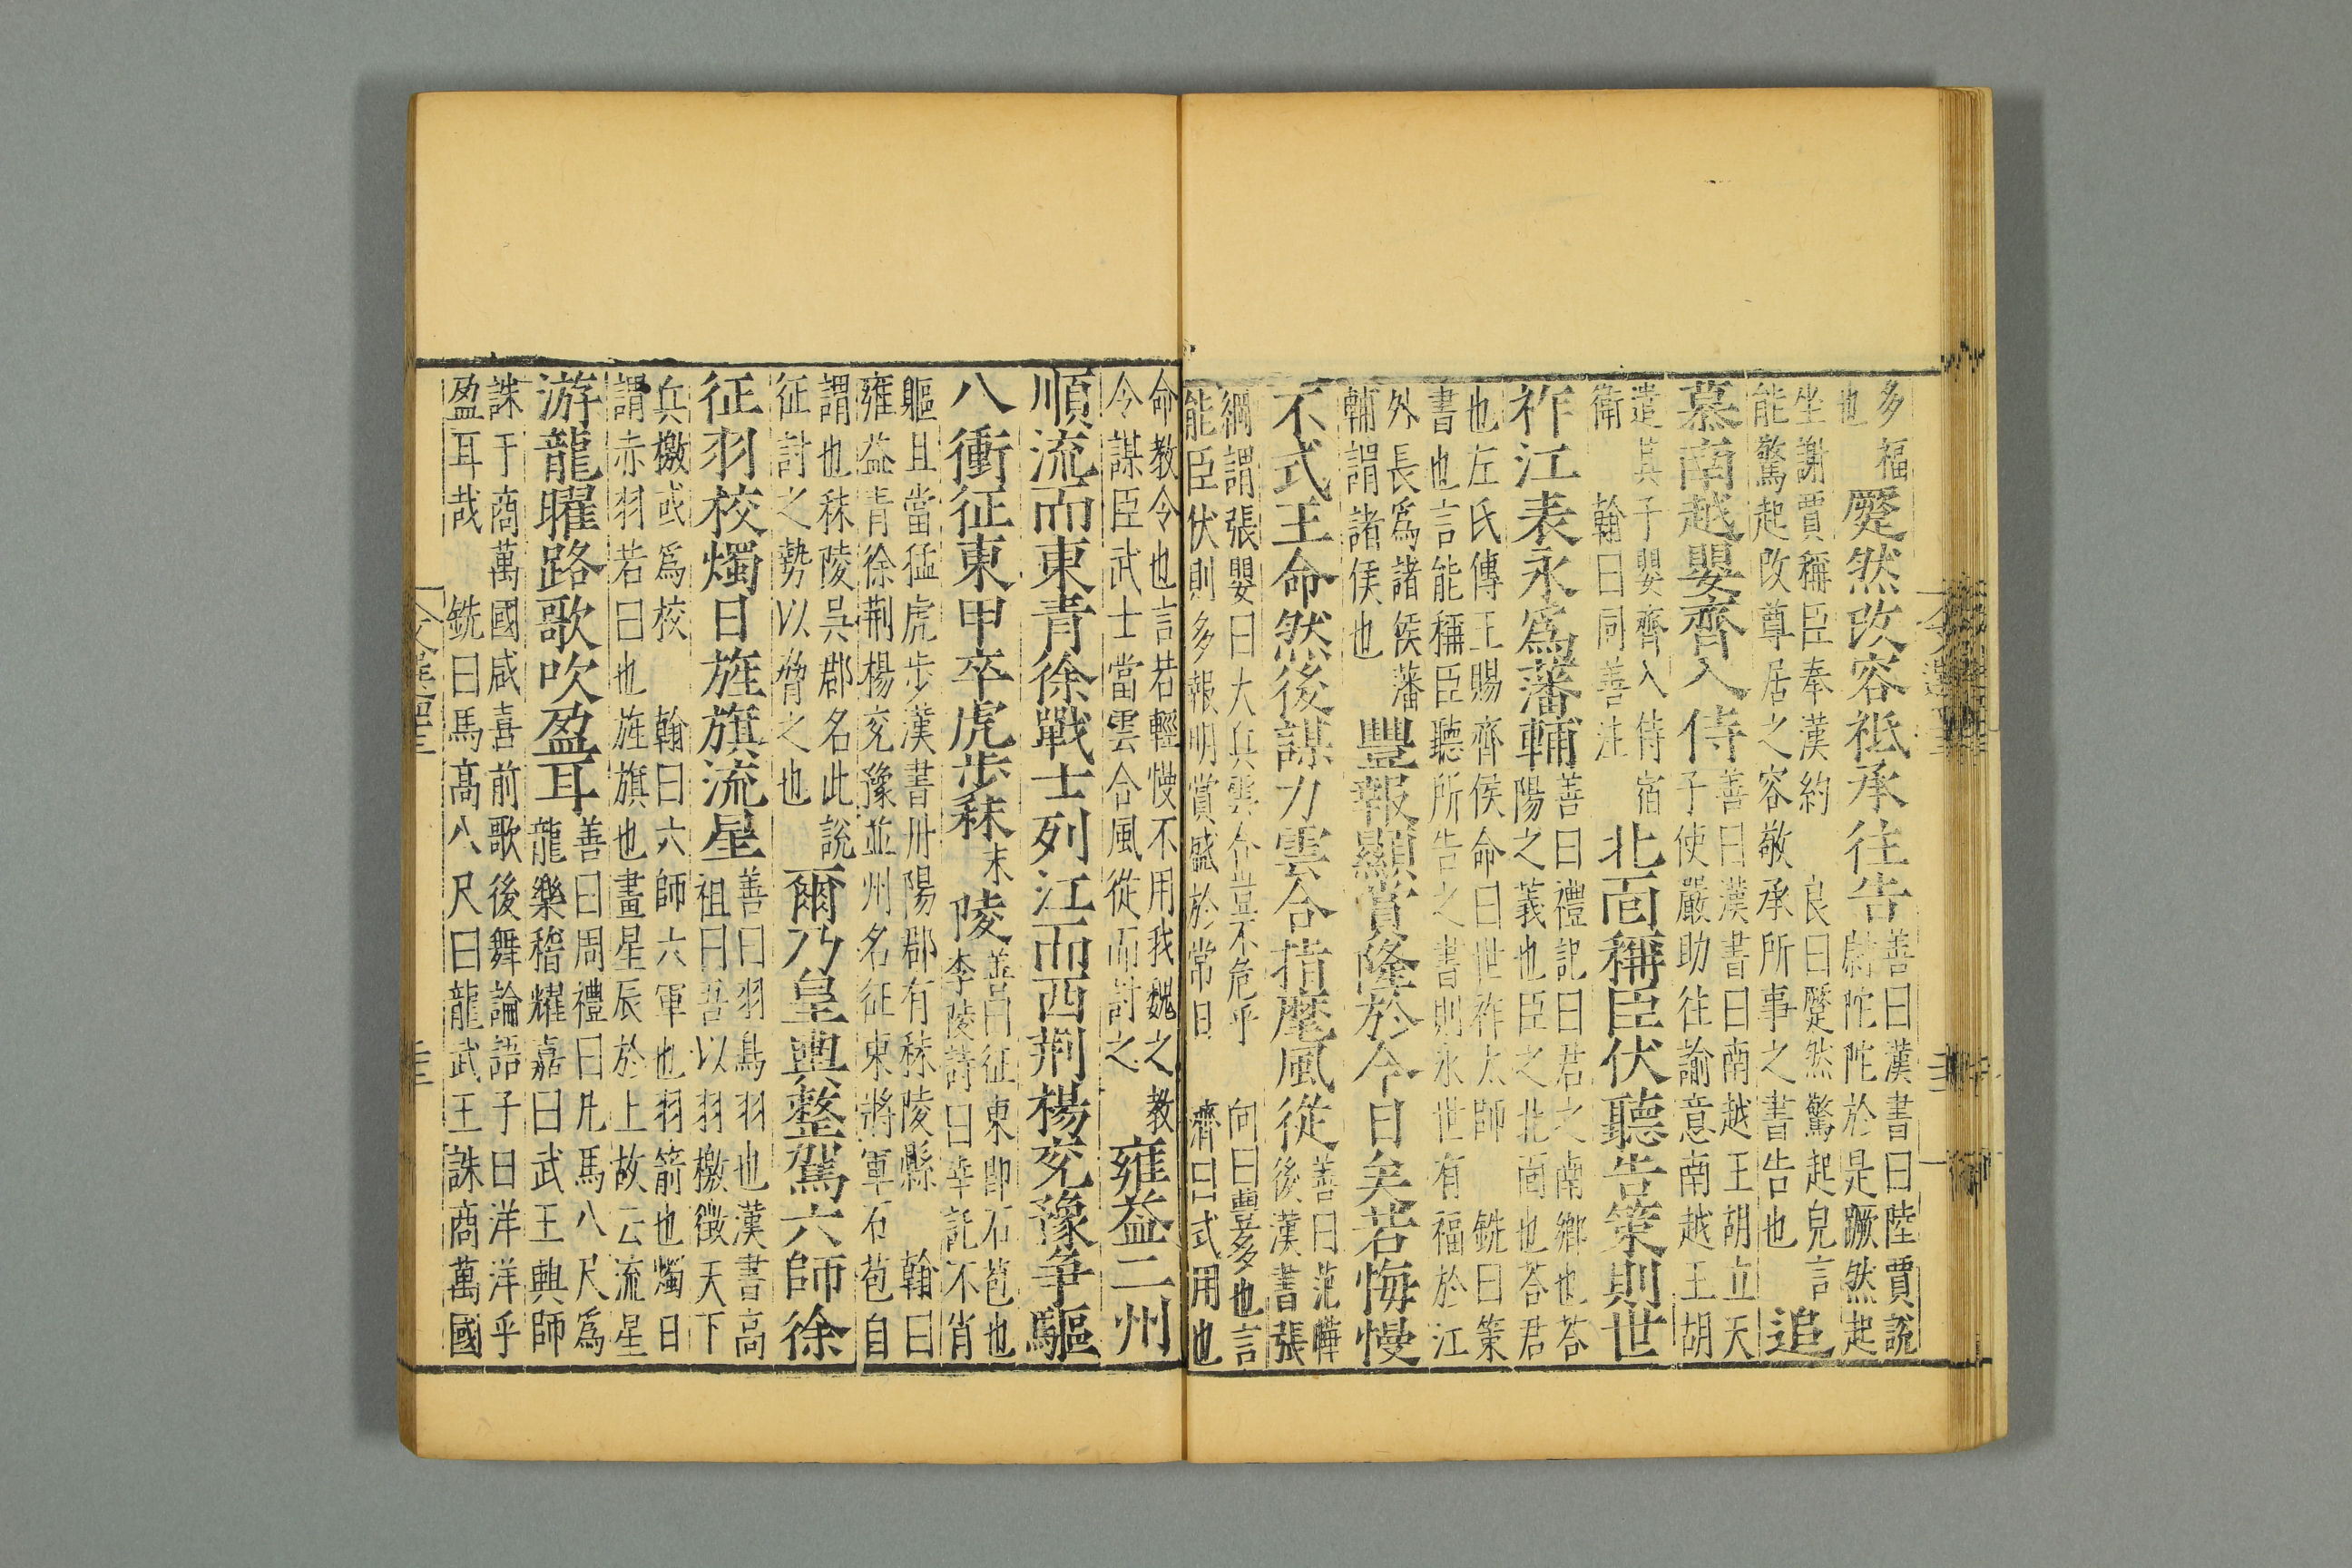 多福
也
蹷然改容祇承往告
善曰漢書曰陸賈說
尉陀陀於是蹶然起
坐謝賈稱臣奉漢約　良曰蹷然驚起皃言
能驚起改尊居之容敬承所事之書告也
追
慕南越嬰齊入侍
善曰漢書曰南越王胡立天
子使嚴助往諭意南越王胡
遣其子嬰齊入侍宿
衛　翰曰同善注
北面稱臣伏聽告策則世
祚江表永爲藩輔
善曰禮記曰君之南鄉也荅
陽之義也臣之北面也荅君
也左氏傳王賜齊侯命曰世祚太師　銑曰策
書也言能稱臣聽所告之書則永世有福於江
外長爲諸侯藩
輔謂諸侯也
豐報顯賞隆於今日矣若悔慢
不式王命然後謀力雲合指麾風從
善曰范曄
後漢書張
綱謂張嬰曰大兵雲合豈不危乎　向曰豐多也言
能臣伏則多報明賞盛於常日　濟曰式用也
命教令也言若輕慢不用我魏之教
令謀臣武士當雲合風從而討之
雍益二州
順流而東青徐戰士列江而西荆楊兖豫争驅
八衝征東甲卒虎步秣末陵
善曰征東即石苞也
李陵詩曰幸託不肖
軀且當猛虎步漢書丹陽郡有秣陵縣　翰曰
雍益青徐荆楊兖豫並州名征東將軍石苞自
謂也秣陵吳郡名此說
征討之勢以脅之也
爾乃皇輿整駕六師徐
征羽校燭日旌旗流星
善曰羽鳥羽也漢書高
祖曰吾以羽檄徵天下
兵檄或爲校　翰曰六師六軍也羽箭也燭日
謂赤羽若日也旌旗也畫星辰於上故云流星
游龍曜路歌吹盈耳
善曰周禮曰凡馬八尺爲
龍樂稽耀嘉曰武王興師
誅于商萬國咸喜前歌後舞論語子曰洋洋乎
盈耳哉　銑曰馬高八尺曰龍武王誅商萬國